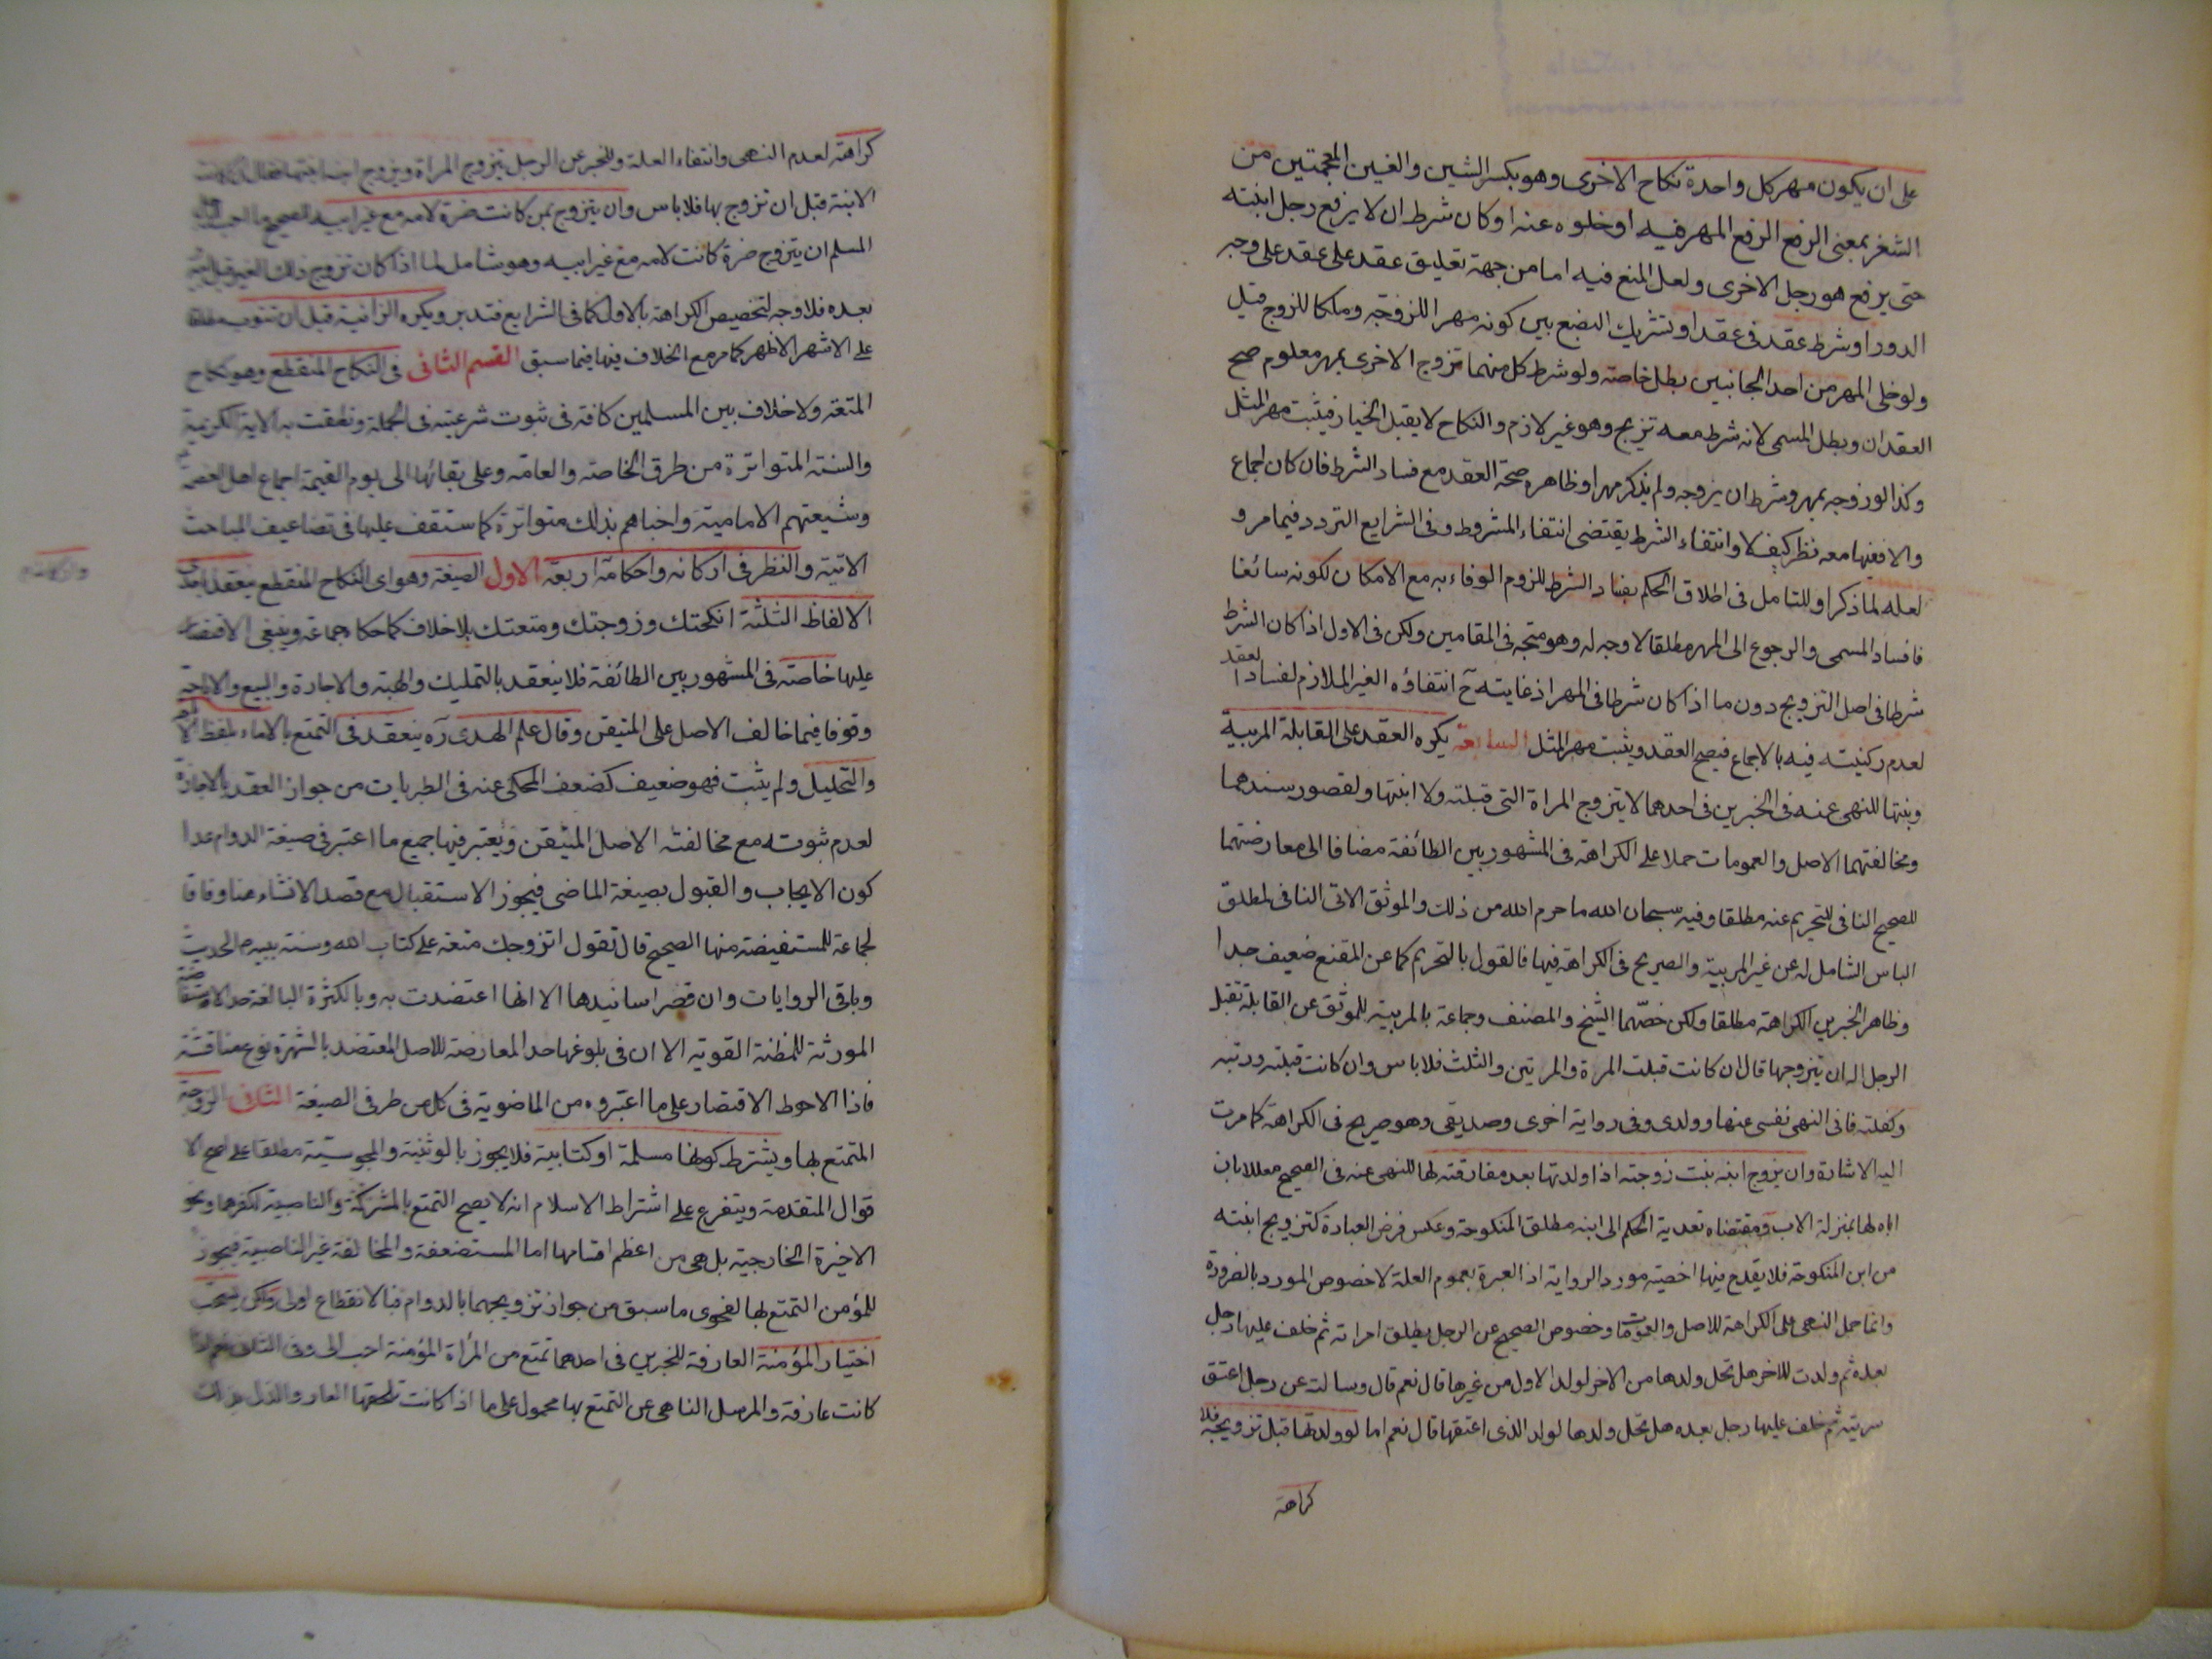 على ان يكون مهر كل واحدة نكاح الاخرى وهو بكسر الشين والغين المعجمتين من
الشغر بمعنى الرفع الرفع المهر فيه او خلوه عنه او كان شرط ان لا يرفع رجل ابنته
حتى يرفع هو رجل الاخرى ولعل المنع فيه اما من جهة تعليق عقد على عقد على وجه
الدور او شرط عقد في عقد او تشريك البضع بين كونه مهرا للزوجة وملكا للزوج قيل
ولو خلى المهر من احد الجانبين بطل خاصته ولو شرط كل منهما تزوج الاخرى بمهر معلوم صح
العقدان وبطل المسمى لانه شرط معه تزيج وهو غير لازم والنكاح لا يقبل الخيار فيثبت مهر المثل
وكذا لو زوجه بمهر وشرط ان يزوجه ولم يذكر مهرا وظاهره صحة العقد مع فساد الشرط فان كان اجماع
والا ففيها معه نظر كيف لا وانتفاء الشرط يقتضى انتفاء المشروط وفى الشرايع التردد فيما مر و
لعله لما ذكر او للتامل فى اطلاق الحكم بفساد الشرط للزوم الوفاء به مع الامكان لكونه سائغا
فافساد المسمى والرجوع الى المهر مطلقا لا وجه له وهو متجه فى المقامين ولكن فى الاول اذا كان الشرط
شرطا فى اصل التزويج دون ما اذا كان شرطا فى المهر اذ غايته ح انتفاؤه الغير الملازم لفساد العقد
لعدم ركنيته فيه بالاجماع فيصح العقد ويثبت مهر المثل السابعة يكره العقد على القابلة المربية
وبنتها للنهى عنه فى الخبرين فى احدهما لا يتزوج المراة التى قبلته ولا ابنتها ولقصور سندهما
ومخالفتهما الاصل والعمومات حملا على الكراهة فى المشهور بين الطائفة مضافا الى معارضتهما
للصحيح النافى للتحريم عنه مطلقا وفيه سبحان الله ما حرم الله من ذلك والموثق الاتى النافى لمطلق
الباس الشامل له عن غير المربية والصريح فى الكراهة فيها فالقول بالتحريم كما عن المقنع ضعيف جدا
وظاهر الخبرين الكراهة مطلقا ولكن خصهما الشيخ والمصنف وجماعة بالمربية للموثق عن القابلة تقبل
الرجل اله ان يتزوجها قال ان كانت قبلت المرة والمرتين والثلث فلا باس وان كانت قبلته وربته
وكفلته فانى انهى نفسى عنها وولدى وفى رواية اخرى وصديقى وهو صريح فى الكراهة كما مرت
اليه الاشارة وان يزوج ابنه بنت زوجته اذا ولدتها بعد مفارقته لها للنهى عنه فى الصحيح معللا بان
اباه لها بمنزلة الاب ومقتضاه تعدية الحكم الى ابنه مطلق المنكوحة وعكس فرض العبارة كتزويج ابنته
من ابن المنكوحة فلا يقدح فيها اخصية مورد الرواية اذ العبرة بعموم العلة لا خصوص المورد بالضرورة
وانما حمل النهى على الكراهة للاصل والعمومات وخصوص الصحيح عن الرجل يطلق امراته ثم خلف عليها رجل
بعده ثم ولدت للاخر هل يحل ولدها من الاخر لولد الاول من غيرها قال نعم قال وسالته عن رجل اعتق
سريته ثم خلف عليها رجل بعده هل يحل ولدها لولد الذى اعتقها قال نعم اما لو ولدتها قبل تزويجه فلا
كراهة
كراهة لعدم النهى وانتفاء العلة وللخبر عن الرجل يتزوج المراة ويزوج ابنه ابنتها فقال ان كانت
الابنة قبل ان تزوج بها فلا باس وان يتزوج بمن كانت ضرة لامه مع غير ابيه للصحيح ما احب للرجل
المسلم ان يتزوج ضرة كانت لامه مع غير ابيه وهو شامل لما اذا كان تزوج ذلك الغير قبل ابيه
بعده فلا وجه لتخصيص الكراهة بالاول كما فى الشرايع فتدبر ويكره الزانية قبل ان تتوب
على الاشهر الاظهر كما مر مع الخلاف فيها فيما سبق القسم الثانى فى النكاح المنقطع وهو نكاح
المتعة ولا خلاف بين المسلمين كافة فى ثبوت شرعيته فى الجملة ونطقت به الاية الكريمة
والسنة المتواترة من طرق الخاصة والعامة وعلى بقائها الى يوم القيمة اجماع اهل العصمة
وشيعتهم الامامية واخبارهم بذلك متواترة كما ستقف عليها فى تضاعيف المباحث
الاتية والنظر فى اركانه واحكامه اربعة الاول الصيغة وهو اى النكاح المنقطع ينعقد باحدى
الالفاظ الثلثة انكحتك وزوجتك ومتعتك بلا خلاف كما حكاه جماعة وينبغى الاقتصار
عليها خاصته فى المشهور بين الطائفة فلا ينعقد بالتمليك والهبة والاجارة والبيع والاباحة
وقوفا فيما خالف الاصل على المتيقن وقال علم الهدى ره ينعقد فى التمتع بالاماء بلفظ الاباحة
والتحليل ولم يثبت فهو ضعيف كضعف المحكى عنه فى الطبريات من جواز العقد بالاجارة
لعدم ثبوته مع مخالفته الاصل المتيقن ويعتبر فيها جميع ما اعتبر فى صيغة الدوام عدا
كون الايجاب والقبول بصيغة الماضى فيجوز الاستقبال مع قصد الانشاء هنا وفاقا
لجماعة للمستفيضة منها الصحيح قال تقول اتزوجك متعة على كتاب الله وسنة نبيه الحديث
وباقى الروايات وان قصر اسانيدها الا انها اعتضدت به وبالكثرة البالغة حد الاستفاضة
المورثة للمظنة القوية الا ان فى بلوغها حد المعارضة للاصل المعتضد بالشهرة نوع مناقشة
فاذا الاحوط الاقتصار على ما اعتبروه من الماضوية فى كل من طرفى الصيغة الثانى الزوجة
المتمتع بها ويشترط كونها مسلمة او كتابية فلا يجوز بالوثنية والمجوسية مطلقا على اصح الا
قوال المتقدمة ويتفرع على اشتراط الاسلام انه لا يصح التمتع بالمشركة والناصبية لكفرهما ونحو
الاخيرة الخارجية بل هى من اعظم اقسامها اما المستضعفة والمخالفة غير الناصبية فيجوز
للمؤمن التمتع بها لفحوى ما سبق من جواز تزويجهما بالدوام فبالانقطاع اولى ولكن يستحب
اختيار المؤمنة العارفة للخبرين فى احدهما تمتع من المرأة المؤمنة احب الى وفى الثانى
كانت عارفة والمرسل الناهى عن التمتع بها محمول على ما اذا كانت تلحقها العار والذل بذلك